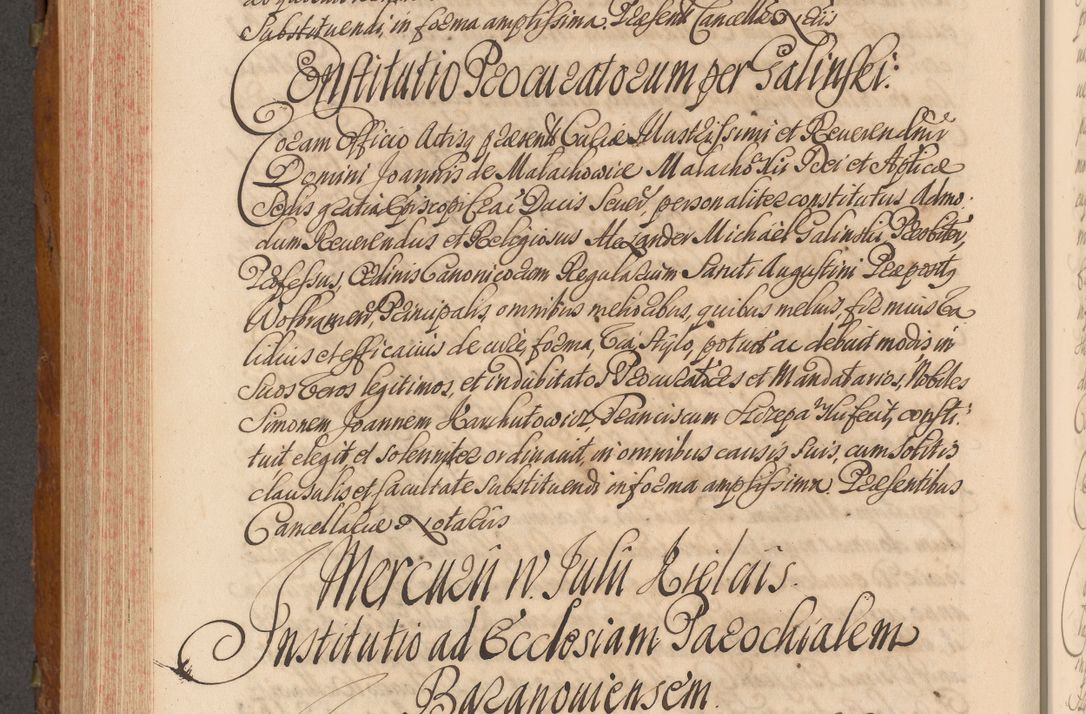 Substituendi, in forma amplissima. Praesent. Cancellae Notrijs
Constitutio Procuratorum per Galinski:
Coram Officio Actisq praesent. Curiae Illustrissimi et Reverendmi
Domini Joannis de Malachowice Malachowski Dei et Aplicae
Sedis gratia Episcopi Crac. Ducis Sever. personaliter constitutus Admo,
dum Reverendus et Religiosus Alexander Michael Galinski Presbiter,
Professus, Ordinis Canonicorum Regularium Sancti Augustini Praeposit,
Wolbramen, Principalis, omnibus melioribus, quibus melius, fir mius va
lidius et efficacius de iure, forma, via, Stylo, potuit ac debuit modis in
Suos veros legitimos, et indubitatos Procuratores et Mandatarios, Nobiles
Simonem Joannem Karchutowicz, Franciscum Szczepa
fecit, consti:
tuit elegit et solenniter ordinavit, in omnibus causis suis, cum solitis
clausulis et facultate substituendi in forma amplissima. Praesentibus
Cancellariae Notarijs
Mercurii IV. Julii Kielcis.
Institutio ad Ecclesiam Parochialem
Baranoviensem.